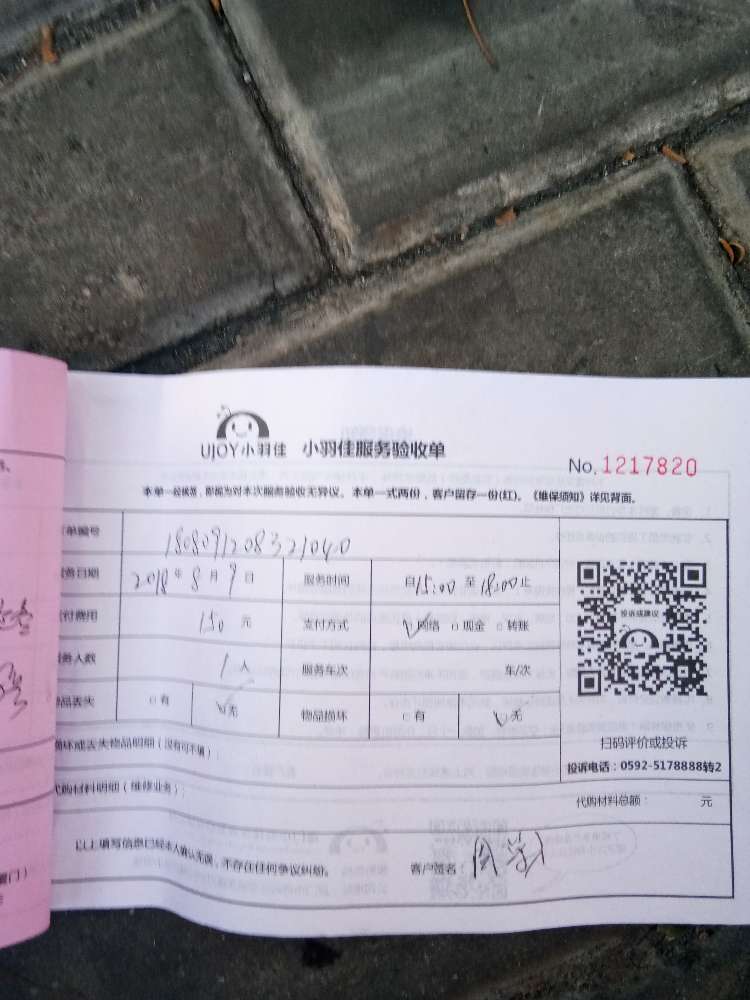 UJOY小羽佳 小羽佳服务验收单
No. 1217820
本单一经核签，即视为对本次服务验收无异议。本单一式两份，客户留存一份(红)。《维保须知》详见背面。
单编号 180809120832104.0
务日期 2018年8月9日 服务时间 自15:00至18:00止
付费用 150元 支付方式 网络 现金 转账
务人数 1人 服务车次 车/次
品丢失 有 无 物品损坏 有 无
投诉或建议
扫码评价或投诉
投诉电话：0592-5178888转2
损坏或丢失物品明细（没有可不填）：
代购材料明细（维修业务）：
代购材料总额： 元
以上填写信息已经本人确认无误，不存在任何争议纠纷。 客户签名：周
厦门）